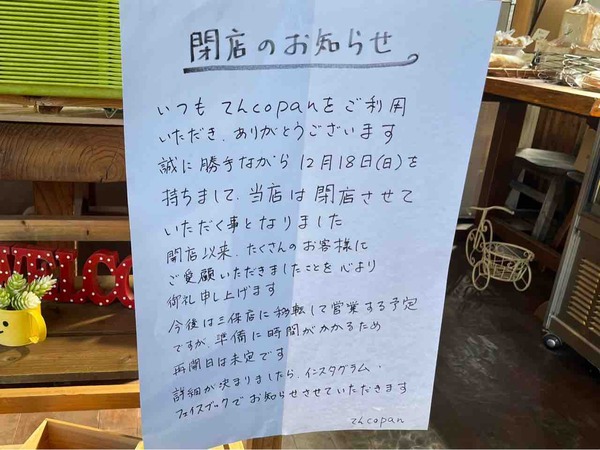 閉店のお知らせ
いつも てんcopanをご利用
いただき、ありがとうございます
誠に勝手ながら 12月18日(日)を
持ちまして、当店は閉店させて
いただく事となりました
開店以来、たくさんのお客様に
ご愛顧いただきましたことを心より
御礼申し上げます
今後は三保店に移転して営業する予定
ですが、準備に時間がかかるため
再開日は未定です
詳細が決まりましたら、インスタグラム・
フェイスブックでお知らせさせていただきます
てんcopan